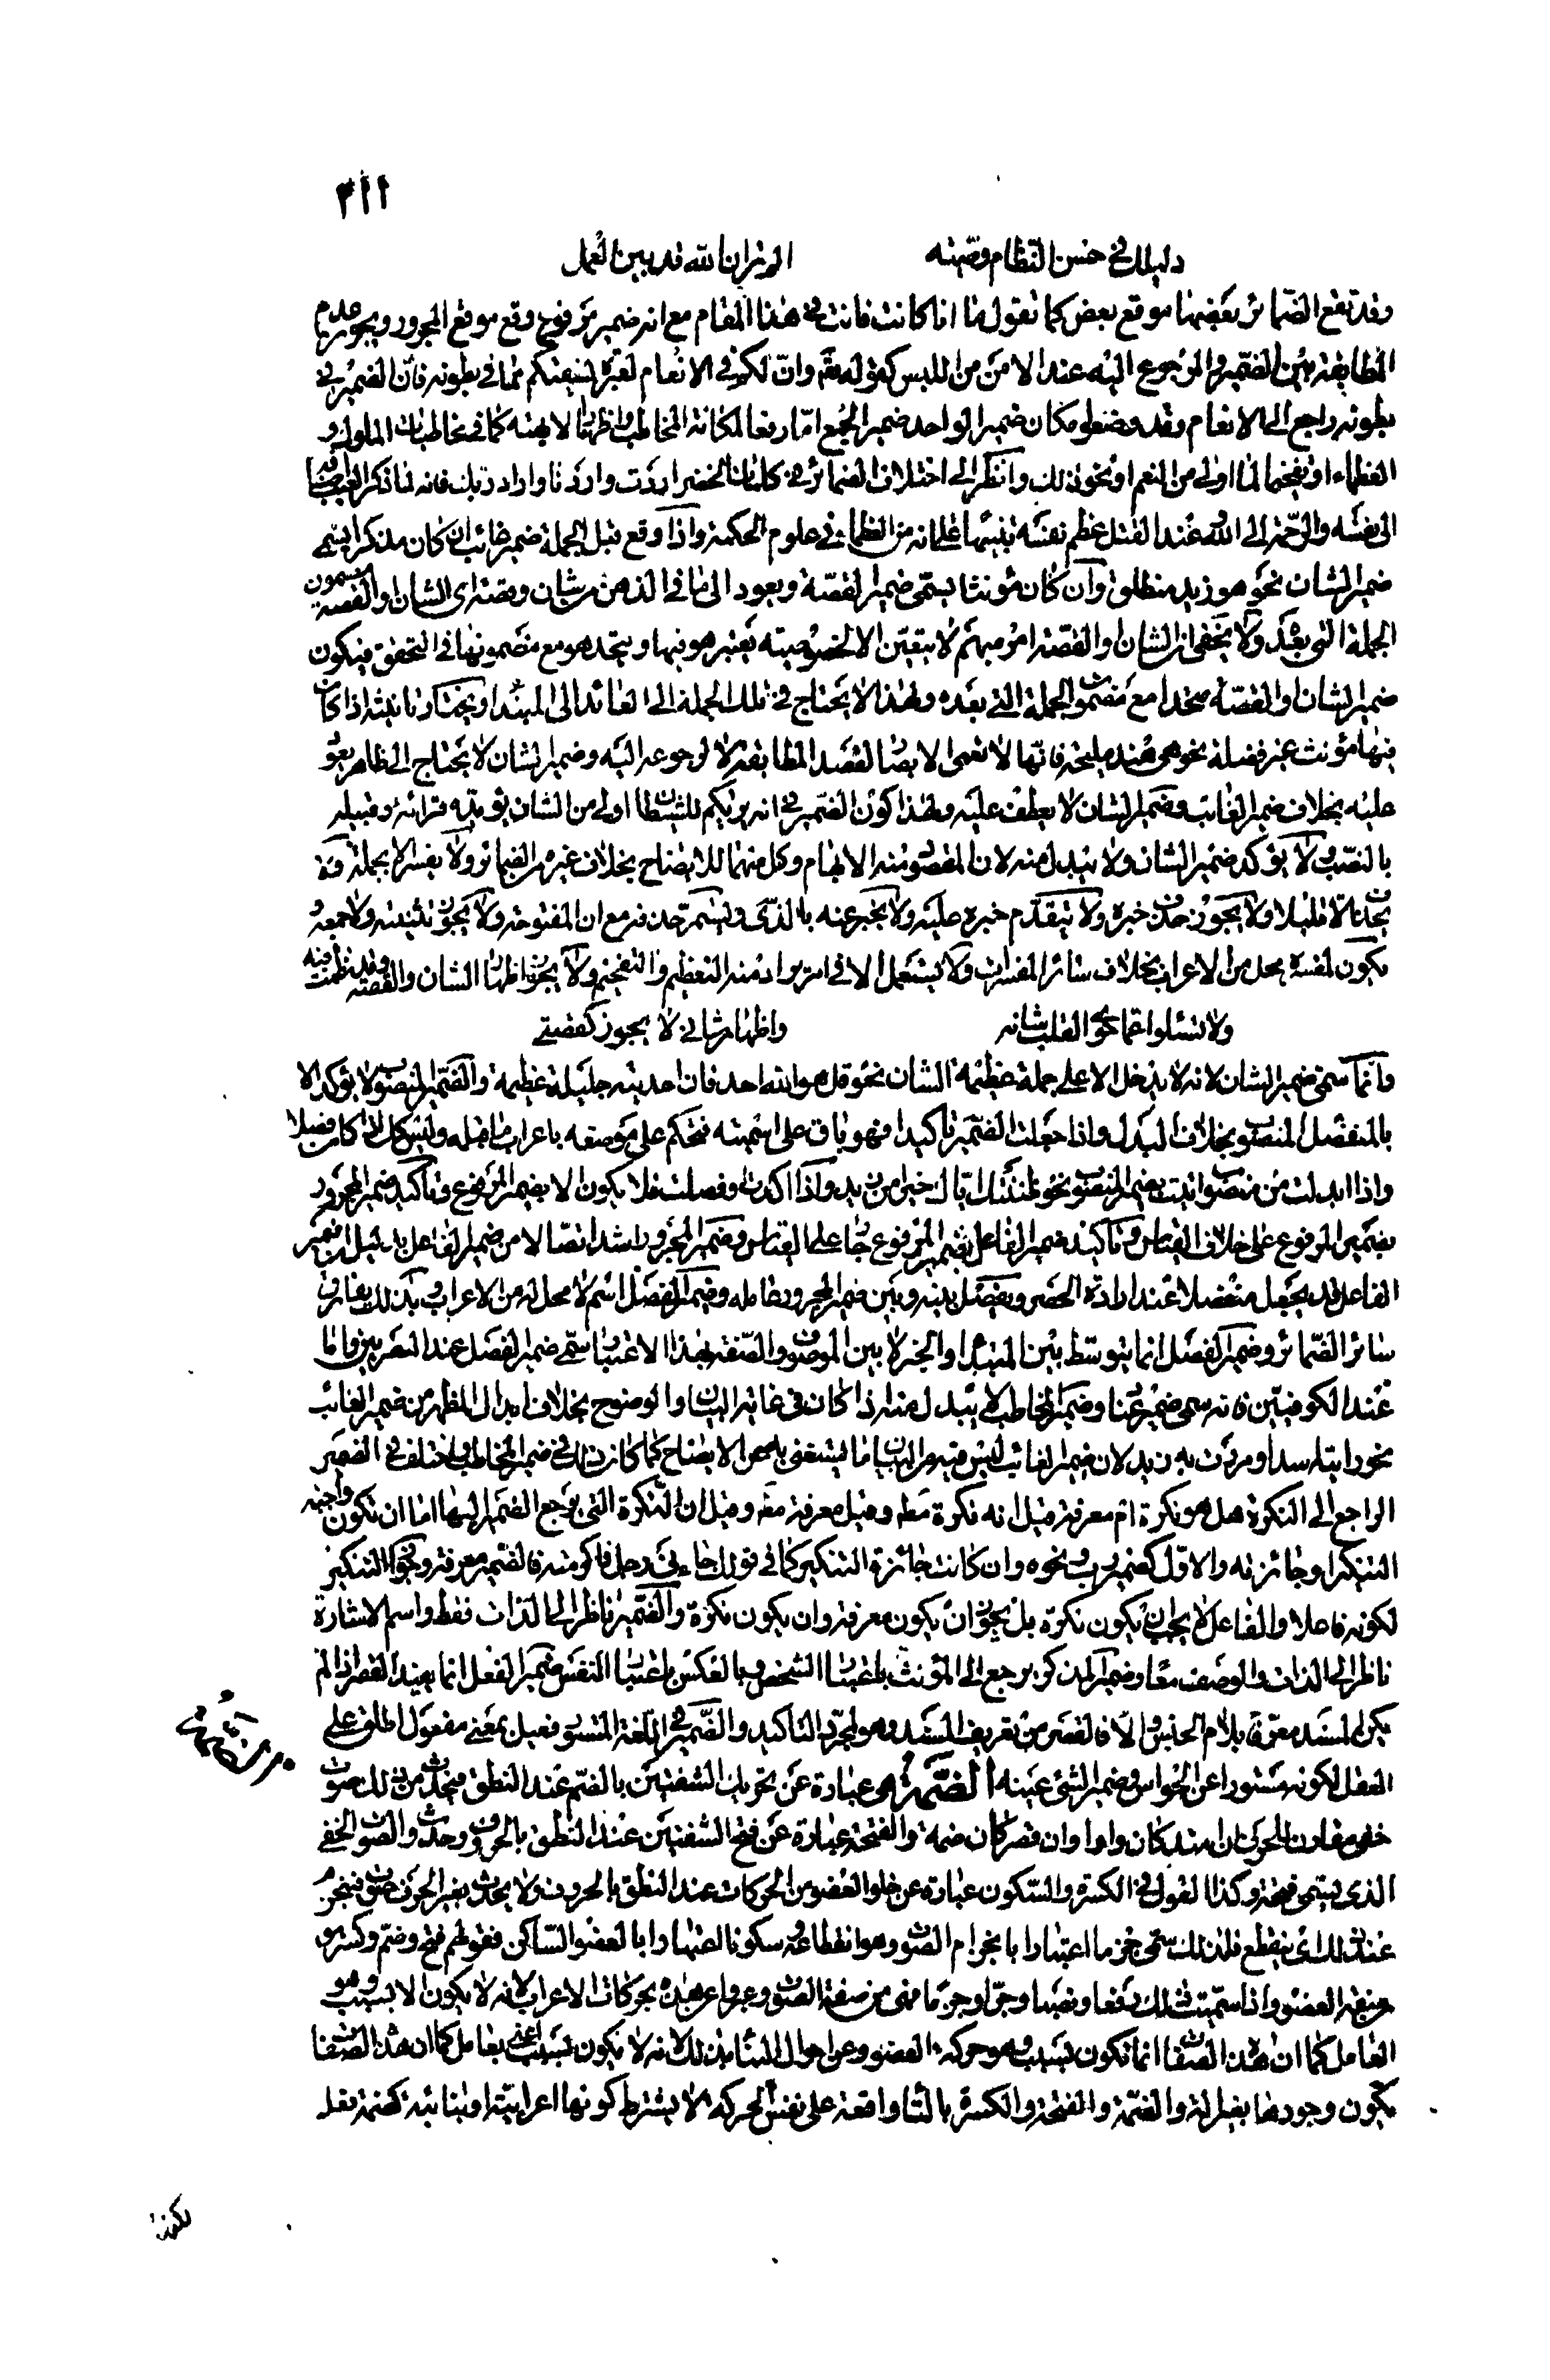 ٣١١
دليلك في حسن النظام وقبحه الم تر ان الله قد بين العمل
وقد تقع الضمائر بعضها موقع بعض كما تقول ما انا كانت فانت في هذا المقام مع انه ضمير مرفوع وقع موقع المجرور ويجوز عدم
المطابقة بين الضمير والمرجوع اليه عند الامن من اللبس كقوله تعه وان لكم في الانعام لعبرة نسقيكم مما في بطونه فان الضمير في
بطونه راجع الى الانعام وقد وضعوا مكان ضمير الواحد ضمير الجمع اما رفعا لمكانة المخاطب واظهارا لابهته كما في مخاطبات الملوك و
العظماء او تفخيما لما اولى من النعم او نحو ذلك وانظر الى اختلاف الضمائر في كلمات الخضر اردت واردنا واراد ربك فانه لما ذكر العيب اضافه
الى نفسه والرحمة الى الله وعند القتل عظم نفسه تنبيها على انه من العظماء في علوم الحكمة واذا وقع قبل الجملة ضمير غائب ان كان مذكرا يسمى
ضمير الشان نحو هو زيد منطلق وان كان مؤنثا يسمى ضمير القصة ويعود الى ما في الذهن من شان وقصة اى الشان والقصة مضمون
الجملة التى بعده ولا يخفى ان الشان والقصة امر مبهم لا يتعين الا بخصوصيته يعتبر هو فيها ويتحد هو مع مضمونها في التحقق فيكون
ضمير الشان والقصة متحدا مع مضمون الجملة التى بعده ولهذا لا يحتاج في تلك الجملة الى العائد الى المبتدا ويختار تانيثه اذا كان
فيها مؤنث غير فضلة نحو هى هند مليحة فانها لا تعمى الابصار لقصد المطابقة لا لرجوعه اليه وضمير الشان لا يحتاج الى ظاهر يعود
عليه بخلاف ضمير الغائب وضمير الشان لا يعطف عليه ولهذا كون الضمير في انه يريكم للشيطان اولى من الشان يؤيده قرائة وقبيله
بالنصب ولا يؤكد ضمير الشان ولا يبدل منه لان المقصود منه الابهام وكل منهما للايضاح بخلاف غيره من الضمائر ولا يفسر الا بجملة ولا
يحذف الا قليلا ولا يجوز حذف خبره ولا يتقدم خبره عليه ولا يخبر عنه بالذى ويستمر حذفه مع ان المفتوحة ولا يجوز تثنيته ولا جمعه و
يكون لمفسره محل من الاعراب بخلاف سائر المفسرات ولا يستعمل الا في امر يراد منه التعظيم والتفخيم ولا يجوز اظهار الشان والقصة وقد نظمت فيه
ولا تسئلوا عما حوى القلب شانه واظهار شانى لا يجوز كقصتى
وانما سمى ضمير الشان لانه لا يدخل الا على جملة عظيمة الشان نحو قل هو الله احد فان احديته جليلة عظيمة والضمير المنصوب لا يؤكد الا
بالمنفصل المنصوب بخلاف البدل واذا جعلت الضمير تاكيدا فهو باق على اسميته فتحكم على موضعه باعراب ما قبله وليس كذلك اذا كان فصلا
واذا ابدلت من منصوب اتيت بضمير المنصوب نحو ظننتك اياك خيرا من زيد واذا اكدت وفصلت فلا يكون الا بضمير المرفوع وتاكيد ضمير المجرور
بضمير المرفوع على خلاف القياس وتاكيد ضمير الفاعل بضمير المرفوع جار على القياس وضمير المجرور اشد اتصالا من ضمير الفاعل بدليل ان ضمير
الفاعل قد يجعل منفصلا عند ارادة الحصر ويفصل بينه وبين ضمير المجرور وعامله وضمير الفصل اسم لا محل له من الاعراب وبذلك يفارق
سائر الضمائر وضمير الفصل انما يتوسط بين المبتدا والخبر لا بين الموصوف والصفة بهذا الاعتبار سمى ضمير الفصل عند البصريين واما
عند الكوفيين فانه سمى ضمير عمادا وضمير المخاطب لا يبدل منه اذا كان في غاية البيان والوضوح بخلاف ابدال المظهر من ضمير الغائب
نحو رايته اسدا ومررت به زيد لان ضمير الغائب ليس فيه من البيان ما يستغنى به عن الايضاح كما كان ذلك في ضمير المخاطب واختلف في الضمير
الراجع الى النكرة هل هو نكرة ام معرفة قيل انه نكرة مطه وقيل معرفة مطه وقيل ان النكرة التى يرجع الضمير اليها اما ان تكون واجبة
التنكير او جائزته والاول كضمير رب ونحوه وان كانت جائزة التنكير كما في قولك جاءنى رجل فاكرمته فالضمير معرفة وجواز التنكير
لكونه فاعلا والفاعل لا يجب ان يكون نكرة بل يجوز ان يكون معرفة وان يكون نكرة والضمير ناظر الى الذات فقط واسم الاشارة
ناظر الى الذات والوصف معا وضمير المذكر يرجع الى المؤنث باعتبار الشخص وبالعكس باعتبار النفس وضمير الفصل انما يفيد القصر اذا لم
يكن المسند معرفا بلام الجنس والا فالقصر من تعريف المسند وهو لمجرد التاكيد والضمير في اللغة المستور فعيل بمعنى مفعول اطلق على
العقل لكونه مستورا عن الحواس وضمير الشئ عينه الضمة هى عبارة عن تحريك الشفتين بالضم عند النطق فيحدث من ذلك صوت
خفى مقارن للحرف ان امتد كان واوا وان قصر كان ضمة والفتحة عبارة عن فتح الشفتين عند النطق بالحروف وحدوث الصوت الخفى
الذى يسمى فتحة وكذا القول في الكسرة والسكون عبارة عن خلو العضو من الحركات عند النطق بالحروف ولا يحدث بغير الحرف صوت فينجزم
عند ذلك اى ينقطع فلذلك سمى جزما اعتبارا بانجزام الصوت وهو انقطاعه وسكونا اعتبارا بالعضو الساكن فقولهم فتح وضم وكسر هو
من صفة العضو واذا سميت ذلك رفعا ونصبا وجرا وجزما فهى من صفة الصوت وعبروا عن هذه بحركات الاعراب لانه لا يكون الا بسبب وهو
العامل كما ان هذه الصفات انما تكون بسبب وهو حركة العضو وعن احوال البناء بذلك لانه لا يكون بسبب اعنى بعامل كما ان هذه الصفات
يكون وجودها بغير الة والضمة والفتحة والكسرة بالتاء واقعة على نفس الحركة لا يشترط كونها اعرابية او بنائية كضمة قفل
لكنها